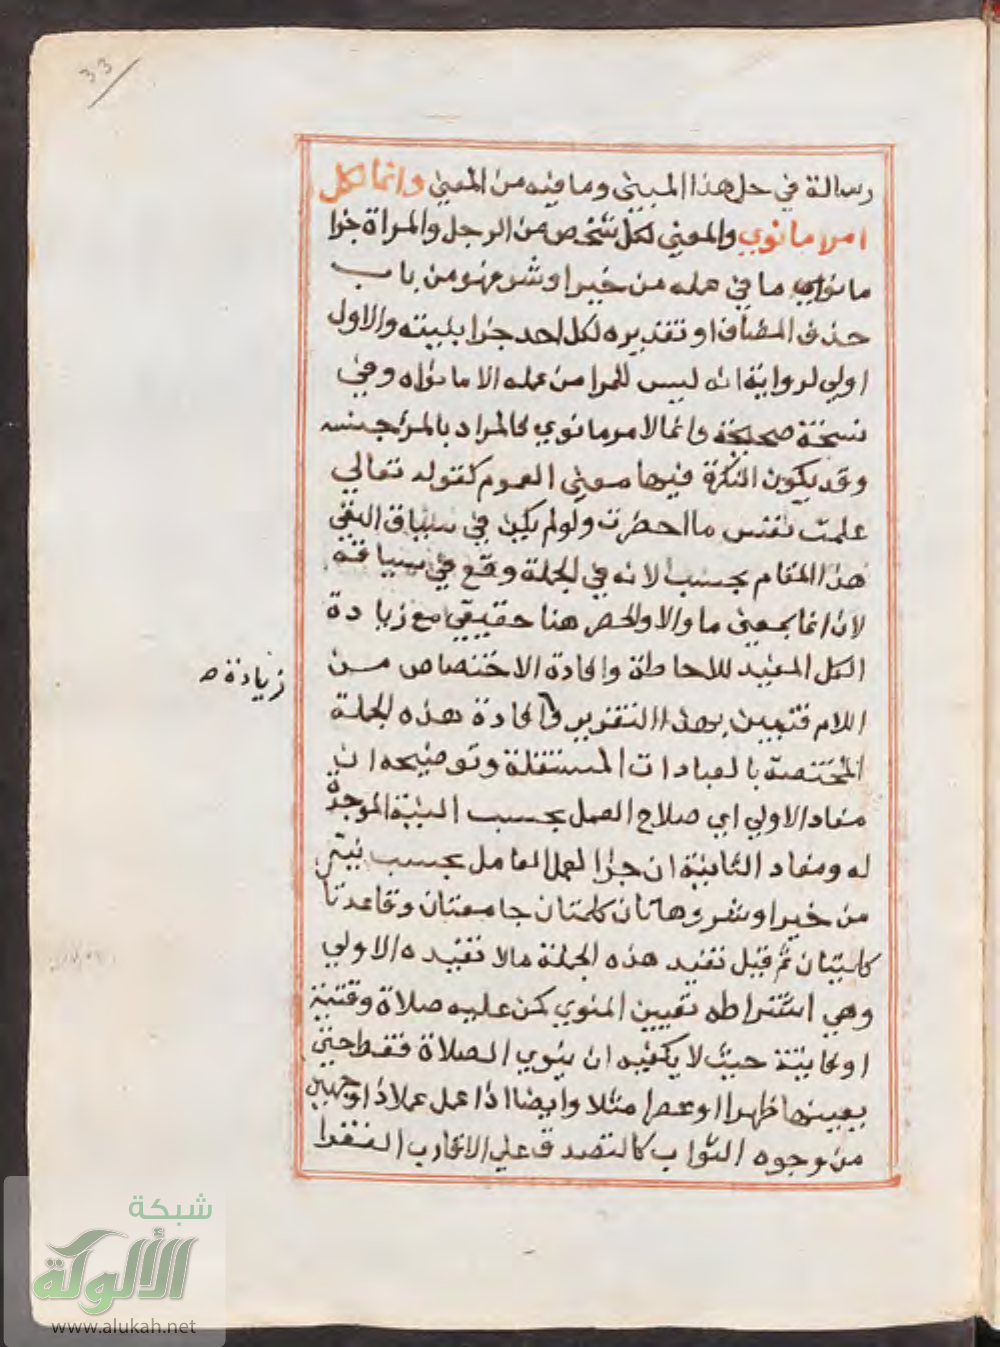 33
رسالة في حل هذا المبني وما فيه من المعني وانما لكل
امرا ما نوي والمعني لكل شخص من الرجل والمراة جزا
ما نواه ما في عمله من خير او شر فهو من باب
حذف المضاف او تقديره لكل احد جزا بنيته والاول
اولي لرواية انه ليس للمرا من عمله الا ما نواه وفي
نسخة صحيحة وانما لامر ما نوي فالمراد بالمرا جنسه
وقد يكون النكرة فيها معني العموم كقوله تعالي
علمت نفس ما احضرت ولو لم يكن في سياق النفي
هذا المقام بحسب لانه في الجملة وقع في سياقه
لان انما بمعني ما والا والحصر هنا حقيقي مع زيادة
الكل المفيد للاحاطة وافادة الاختصاص من
اللام فتبين بهذا التقرير افادة هذه الجملة
المختصة بالعبادات المستقلة وتوضيحه ان
مفاد الاولي اي صلاح العمل بحسب النية الموجدة
له ومفاد الثانية ان جزا لعمل العامل بحسب نيته
من خير او شر وهاتان كلمتان جامعتان وقاعدتا
كليتان ثم قيل تفيد هذه الجملة مالا تفيده الاولي
وهي اشتراط تعيين المنوي كمن عليه صلاة وقتية
او فايتة حيث لا يكفيه ان ينوي الصلاة فقط حتي
يعينها ظهرا او عصرا مثلا وايضا اذا عمل عملا ذا وجهين
من وجوه الثواب كالتصدق علي الاقارب الفقرا
زيادة ص
شبكة
الألوكة
www.alukah.net